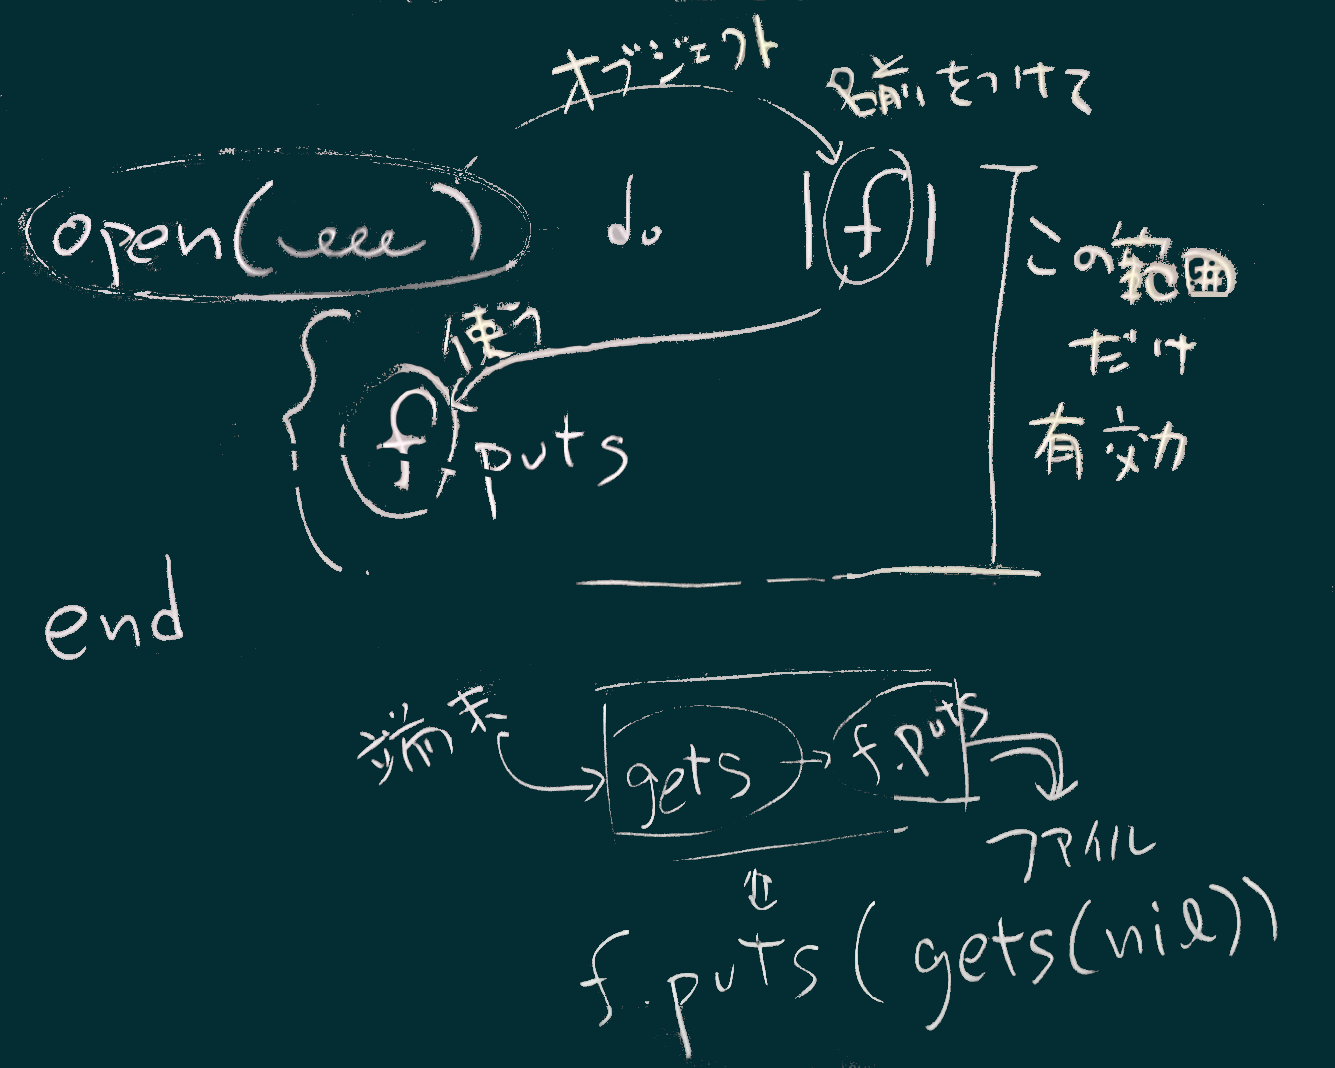 オブジェクト
名前をつけて
open( ) do |f|
この範囲
だけ
有効
使う
f.puts
end
端末
gets → f.puts
ファイル
f.puts(gets(nil))